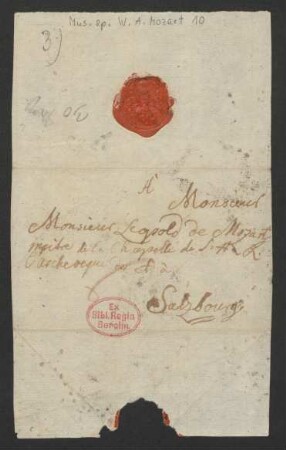 Mus. ep. W. A. Mozart 10
3)
À
Monsieur
Monsieur Leopold de Mozart
maître de la Chapelle de S. A. R.
L'archeveque
à
Salzbourg
Ex
Bibl. Regia
Berolin.